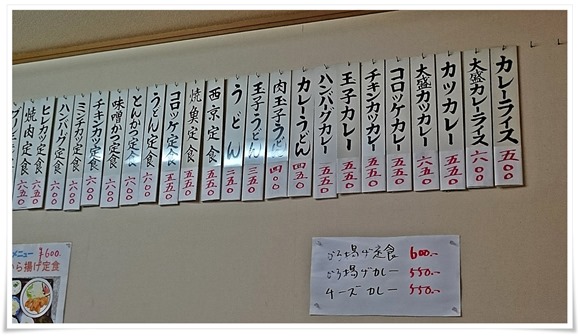 カレーライス 五00
大盛カレーライス 六00
カツカレー 五五0
大盛カツカレー 六五0
コロッケカレー 五五0
チキンカツカレー 五五0
玉子カレー 五五0
ハンバーグカレー 五五0
カレーうどん 四五0
肉玉子うどん 四00
玉子うどん 三五0
うどん 二五0
西京定食 五五0
焼魚定食 五五0
コロッケ定食 五五0
うどん定食 六00
とんかつ定食 六00
味噌かつ定食 六00
チキンカツ定食 六00
ミンチカツ定食 六00
ハンバーグ定食 六00
ヒレカツ定食 六五0
焼肉定食 六五0
から揚げ定食 600.-
から揚げカレー 550.-
チーズカレー 550.-
メニュー ¥600.
から揚げ定食